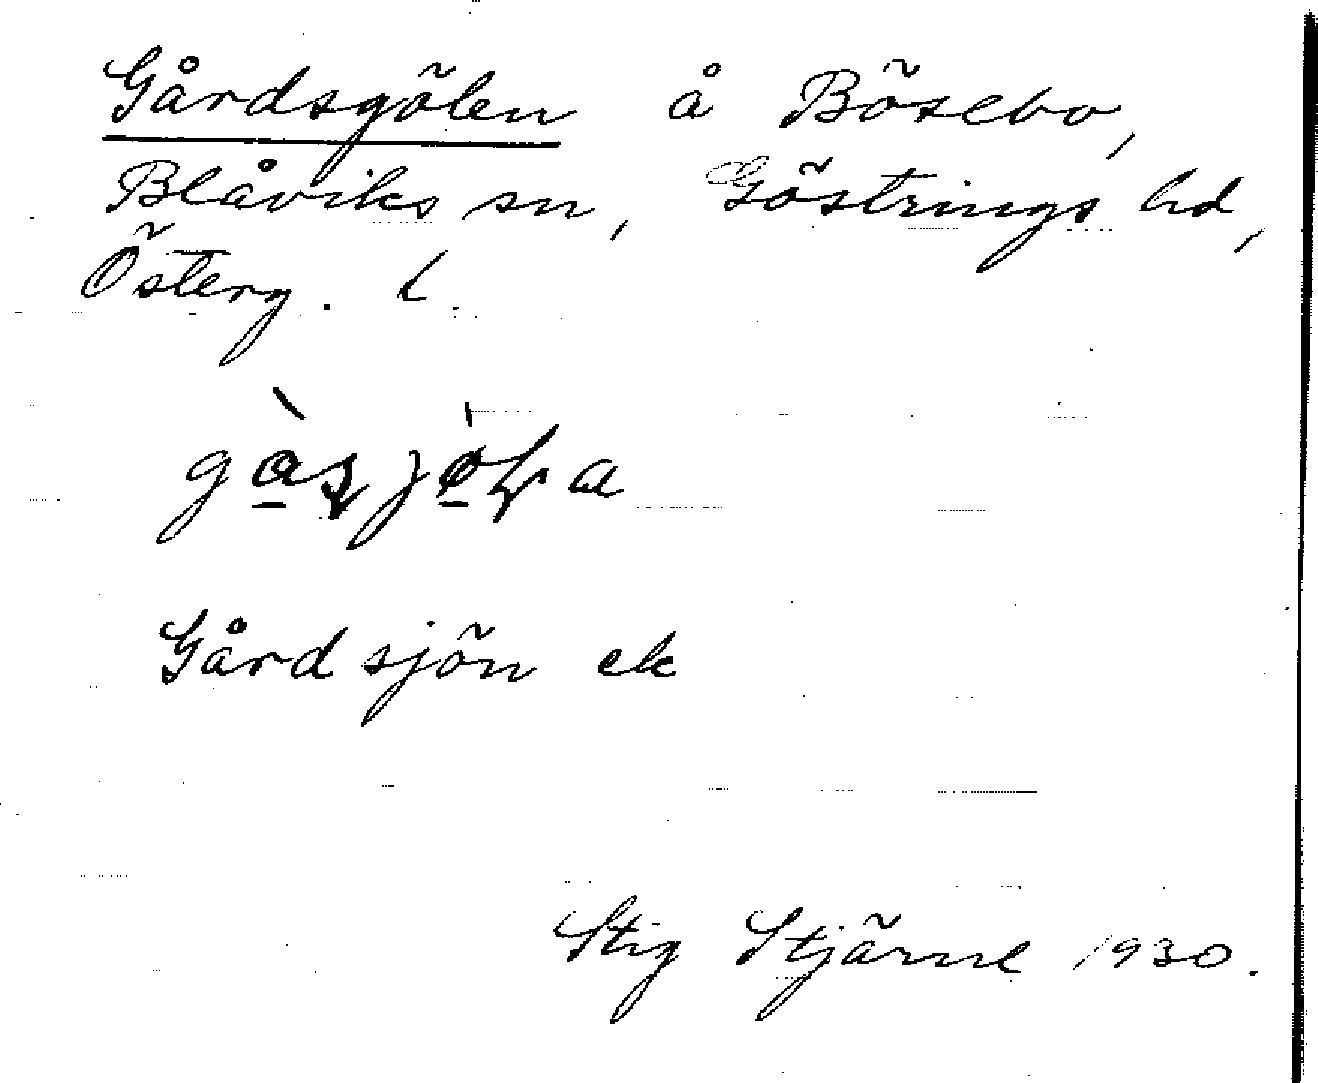 Gårdsgölen å Bösebo,
Blåviks sn, Göstrings hd,
Österg. l.
Gårdsjön ek
Stig Stjärne 1930.